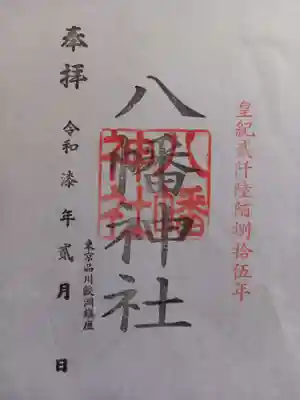 皇紀貳仟陸陌捌拾伍年
八幡神社
八幡神社
東京品川鮫洲鎮座
奉拝
令和漆年貳月 日